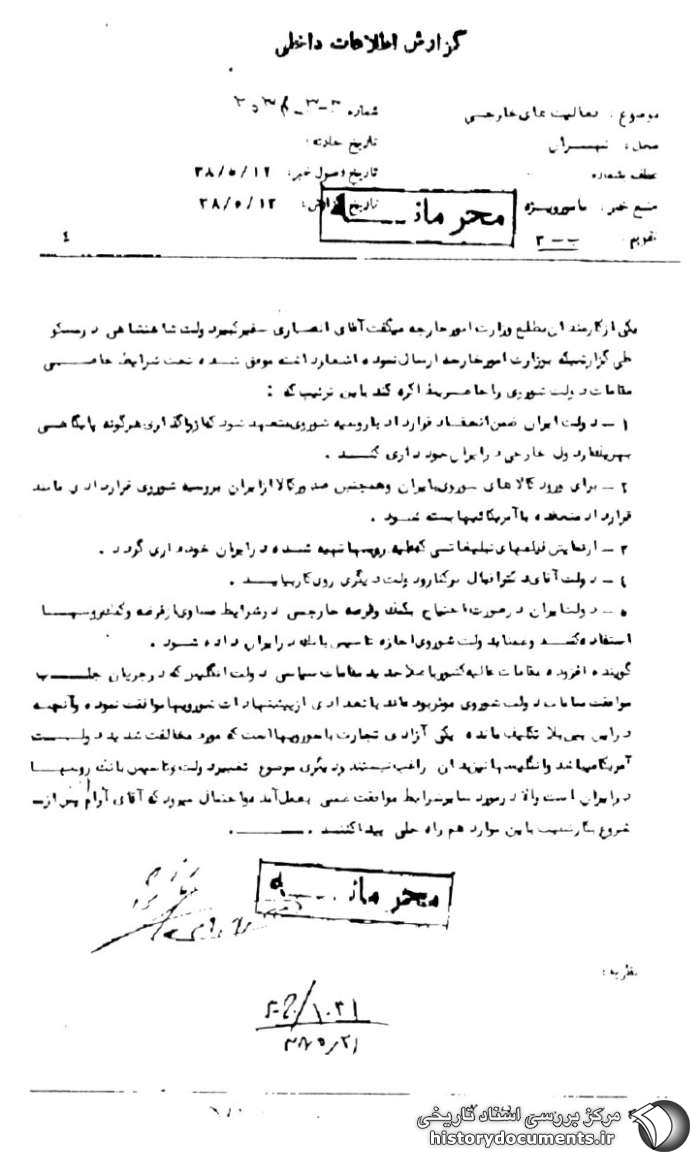 گزارش اطلاعات داخلی
موضوع : فعالیت های خارجی
شماره
محل : تهران
تاریخ حادثه :
عطف بشماره
تاریخ وصول خبر : ۳۸/۵/۱۲
منبع خبر : مامور ویژه
تاریخ گزارش : ۳۸/۵/۱۳
محرمانــه
تقویم : ب – ۲
٤
یکی از کارمندان مطلع وزارت امور خارجه میگفت آقای انصاری سفیر کبیر دولت شاهنشاهی در مسکو
طی گزارشیکه بوزارت امور خارجه ارسال نموده اشعار داشته موفق شده تحت شرایط خاصی
مقامات دولت شوروی را حاضر بمذاکره کند باین ترتیب که :
۱ – دولت ایران ضمن انعقاد قرارداد با روسیه شوروی متعهد شود که از واگذاری هرگونه پایگاهی
بهریک از دول خارجی در ایران خودداری کند .
۲ – برای ورود کالاهای شوروی بایران و همچنین صدور کالا از ایران بروسیه شوروی قراردادی مانند
قرارداد منعقده با آمریکائیها بسته شود .
۳ – از نمایش فیلمهای تبلیغاتی که علیه روسها تهیه شده در ایران خودداری گردد .
٤ – دولت آقای دکتر اقبال برکنار و دولت دیگری روی کار بیاید .
۵ – دولت ایران در صورت احتیاج بکمک و قرضه خارجی در شرایط مساوی از قرضه و کمک روسها
استفاده کند و ضمنا بدولت شوروی اجازه تاسیس بانک در ایران داده شود .
گوینده افزوده مقامات عالیه کشور با صلاحدید مقامات سیاسی دولت انگلیس که در جریان جلب
موافقت مقامات دولت شوروی موثر بوده اند با تعدادی از پیشنهادات شورویها موافقت نموده و آنچه
در این بین بلا تکلیف مانده یکی آزادی تجارت با شورویها است که مورد مخالفت شدید دولت
آمریکا میباشد و انگلیسها نیز بدان راغب نیستند و دیگری موضوع تغییر دولت و تاسیس بانک روسها
در ایران است والا در مورد سایر شرایط موافقت ضمنی بعمل آمده و احتمال میرود که آقای آرام پس از
شروع بکار نسبت باین موارد هم راه حلی پیدا کنند .
محرمانــه
نظریه :
۳۸/۵/۲۱
مرکز بررسی اسناد تاریخی
historydocuments.ir